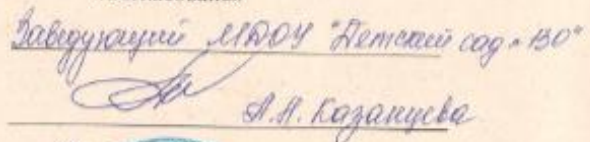 Заведующий МДОУ "Детский сад № 130"
А.А. Казанцева